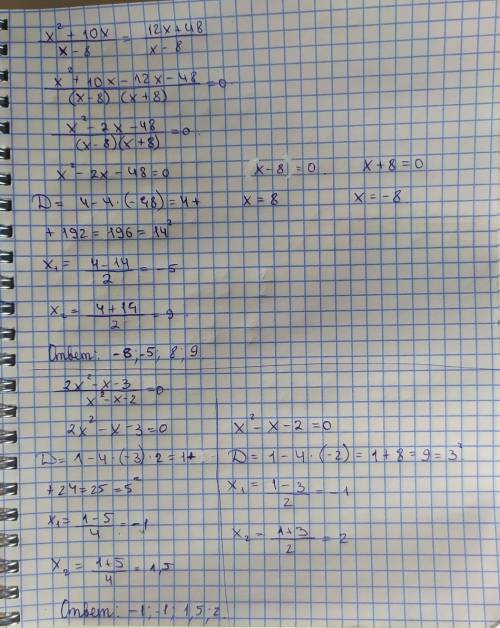 x² + 10x / x - 8 = 12x + 48 / x - 8
x² + 10x - 12x - 48 / (x-8) (x+8) = 0
x² - 2x - 48 / (x-8)(x+8) = 0
x² - 2x - 48 = 0    x - 8 = 0    x + 8 = 0
D = 4 - 4 · (-48) = 4 +    x = 8    x = -8
+ 192 = 196 = 14²
x₁ = 4 - 14 / 2 = -5
x₂ = 4 + 14 / 2 = 9
Ответ: -8; -5; 8; 9
2x² - x - 3 / x² - x - 2 = 0
2x² - x - 3 = 0    x² - x - 2 = 0
D = 1 - 4 · (-3) · 2 = 1 +    D = 1 - 4 · (-2) = 1 + 8 = 9 = 3²
+ 24 = 25 = 5²    x₁ = 1 - 3 / 2 = -1
x₁ = 1 - 5 / 4 = -1    x₂ = 1 + 3 / 2 = 2
x₂ = 1 + 5 / 4 = 1,5
Ответ: -1; -1; 1,5; 2.